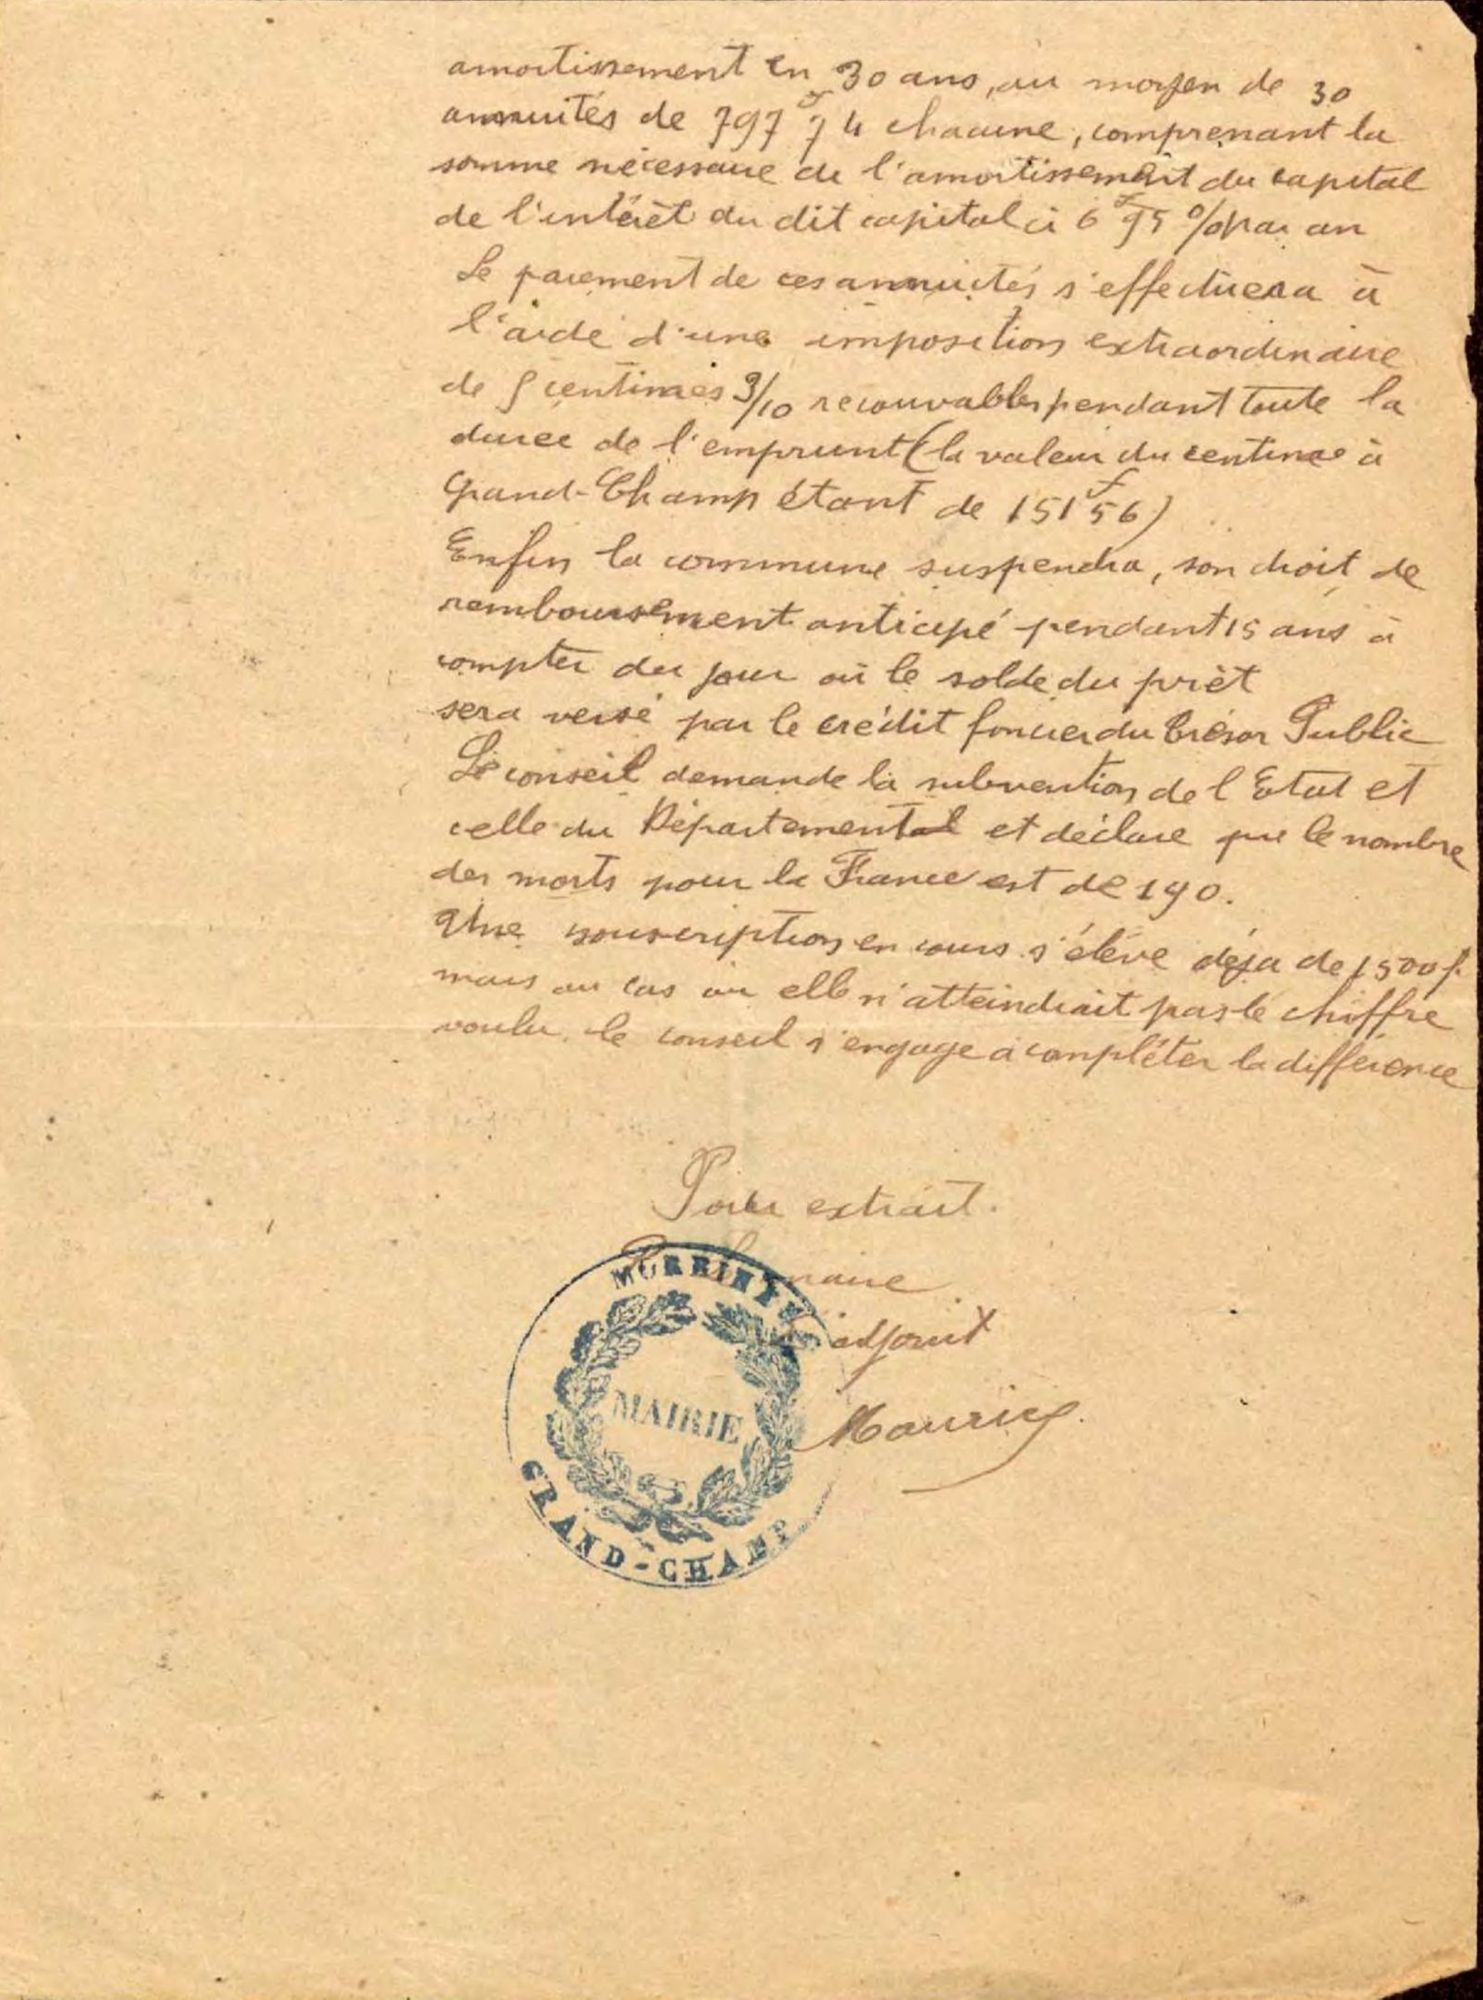 amortissement en 30 ans, au moyen de 30
annuités de 797f 74 chacune, comprenant la
somme nécessaire de l'amortissement du capital
de l'intérêt du dit capital à 6f 95 % par an
Le paiement de ces annuités s'effectuera à
l'aide d'une imposition extraordinaire
de 5 centimes 3/10 recouvrables pendant toute la
durée de l'emprunt (la valeur du centime à
Grand-Champ étant de 151f56)
Enfin la commune suspendra, son droit de
remboursement anticipé pendant 15 ans à
compter du jour où le solde du prêt
sera versé par le crédit foncier du trésor Public
Le conseil demande la subvention de l'Etat et
celle du Département et déclare que le nombre
des morts pour la France est de 190.
Une souscription en cours s'élève déja de 1500f.
mais au cas où elle n'atteindrait pas le chiffre
voulu, le conseil s'engage à compléter la différence
Pour extrait.
maire
L'adjoint
Maurice
MORBIHAN
MAIRIE
GRAND-CHAMP